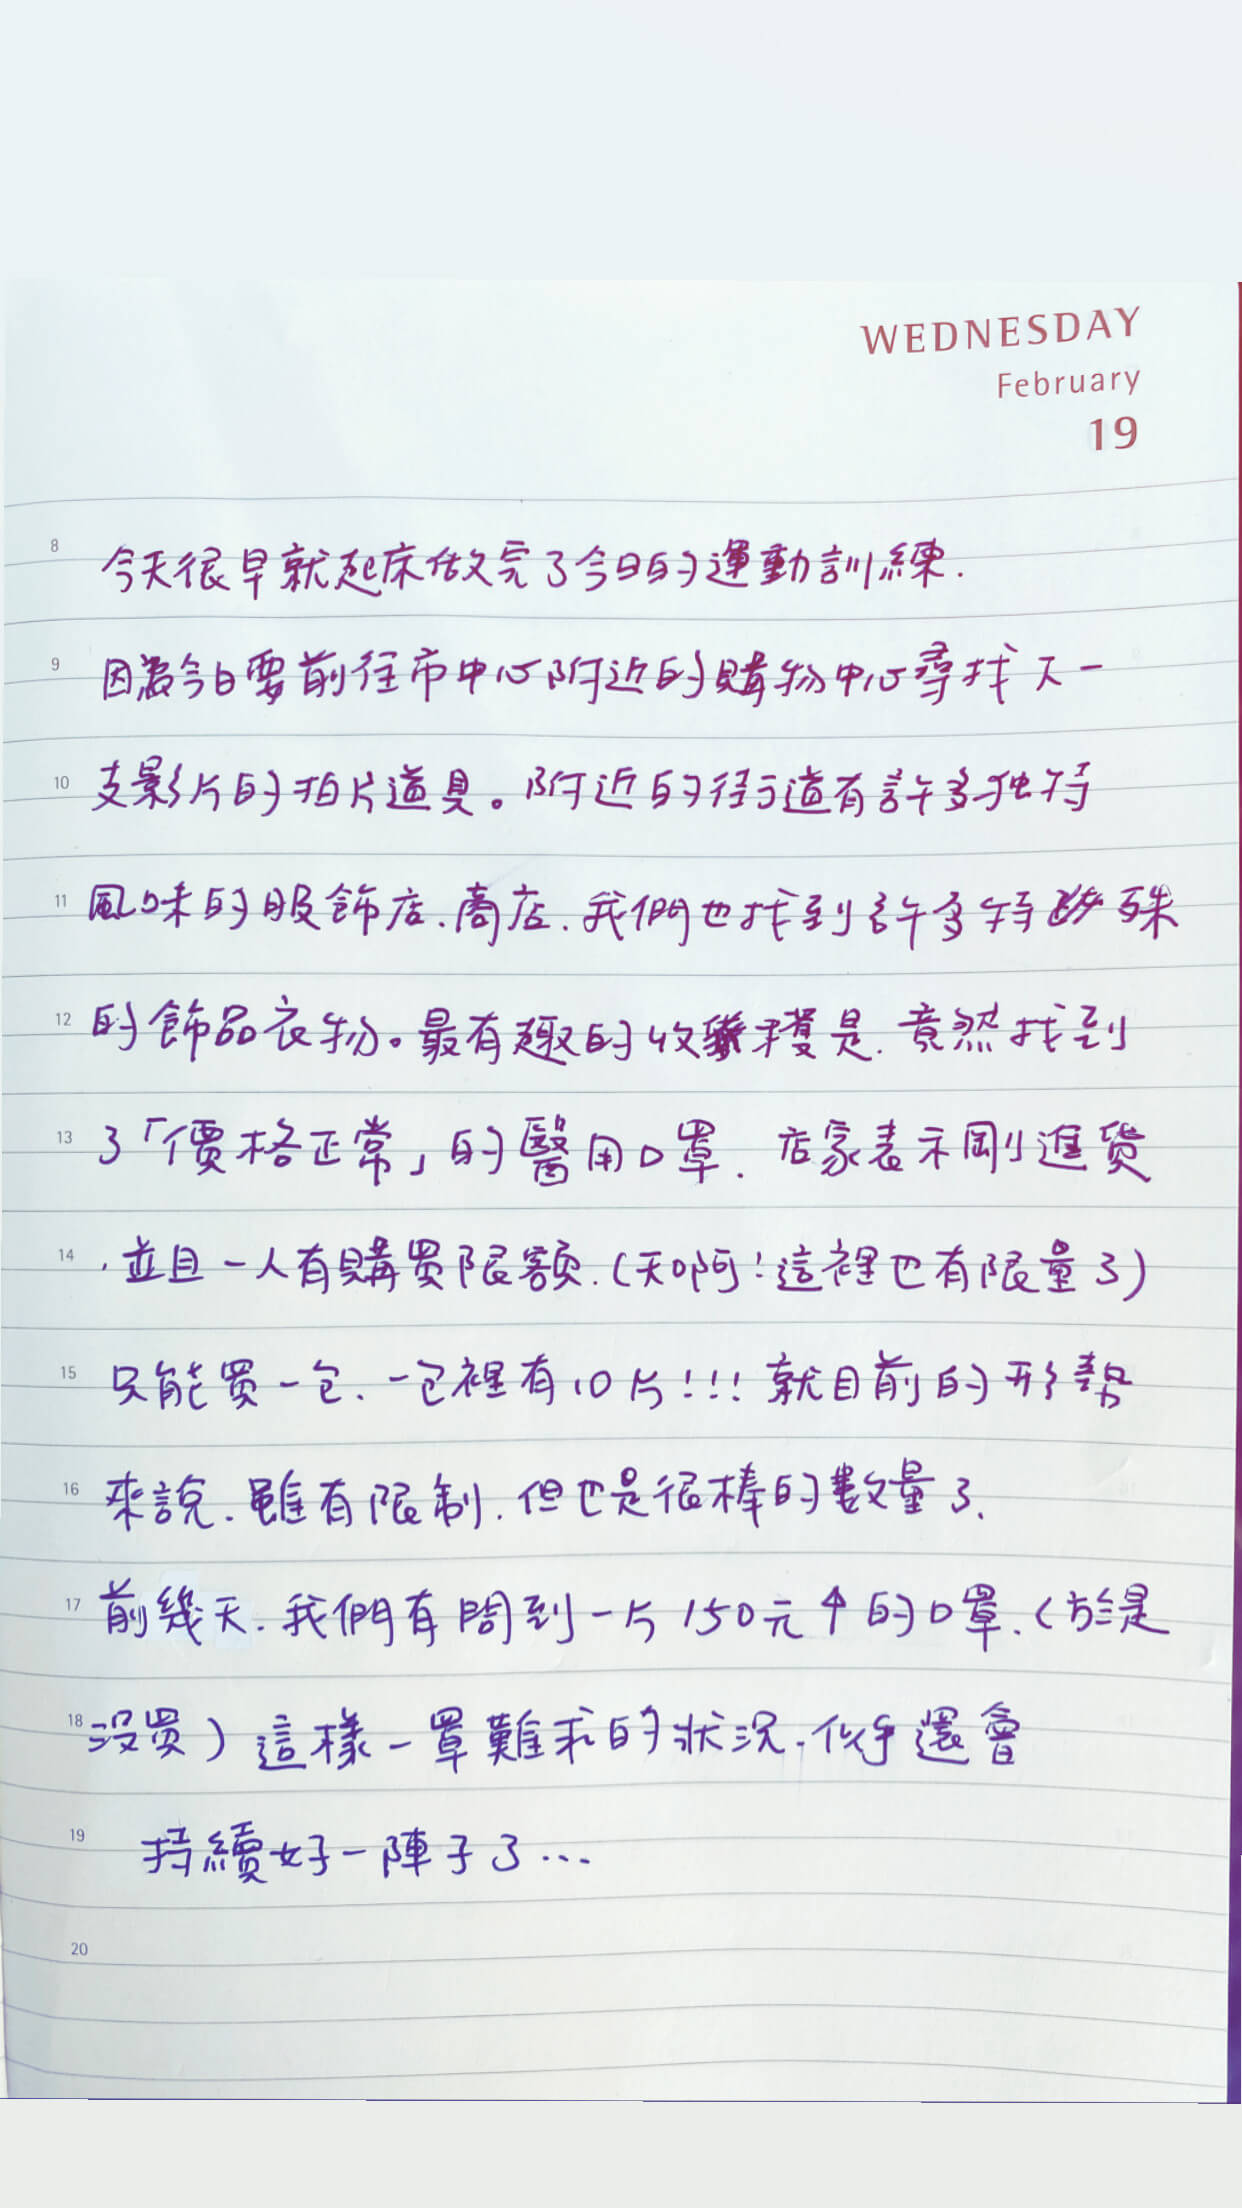 WEDNESDAY
February
19
8 今天很早就起床做完了今日的運動訓練.
9 因為今日要前往市中心附近的購物中心尋找下一
10 支影片的拍片道具。附近的街道有許多独特
11 風味的服飾店、商店、我們也找到許多特殊
12 的飾品衣物。最有趣的收穫是、竟然找到
13 了「價格正常」的醫用口罩、店家表示剛進貨
14 、並且一人有購買限額、(天啊!這裡也有限量了)
15 只能買一包、一包裡有10片!!!就目前的形勢
16 來說、雖有限制、但也是很棒的數量了、
17 前幾天、我們有問到一片150元↑的口罩、(於是
18 沒買)這樣一罩難求的狀況、似乎還會
19 持續好一陣子了...
20